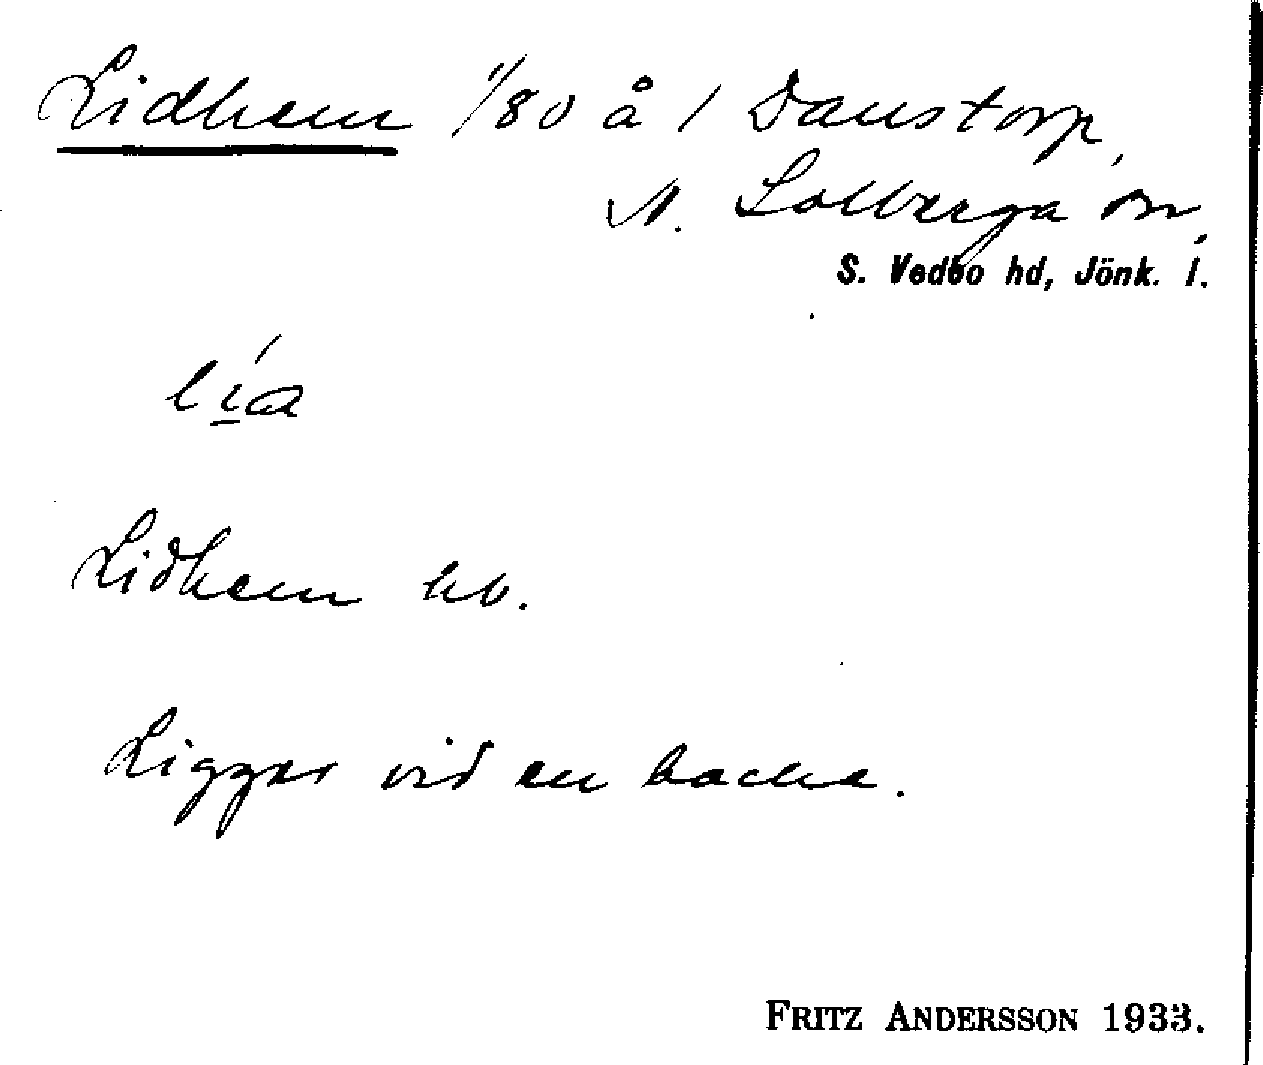 Lidhem 1/80 å 1 Danstorp,
N. Solberga sn,
S. Vedbo hd, Jönk. l.
Lidhem hb.
Ligger vid en backe.
FRITZ ANDERSSON 1933.